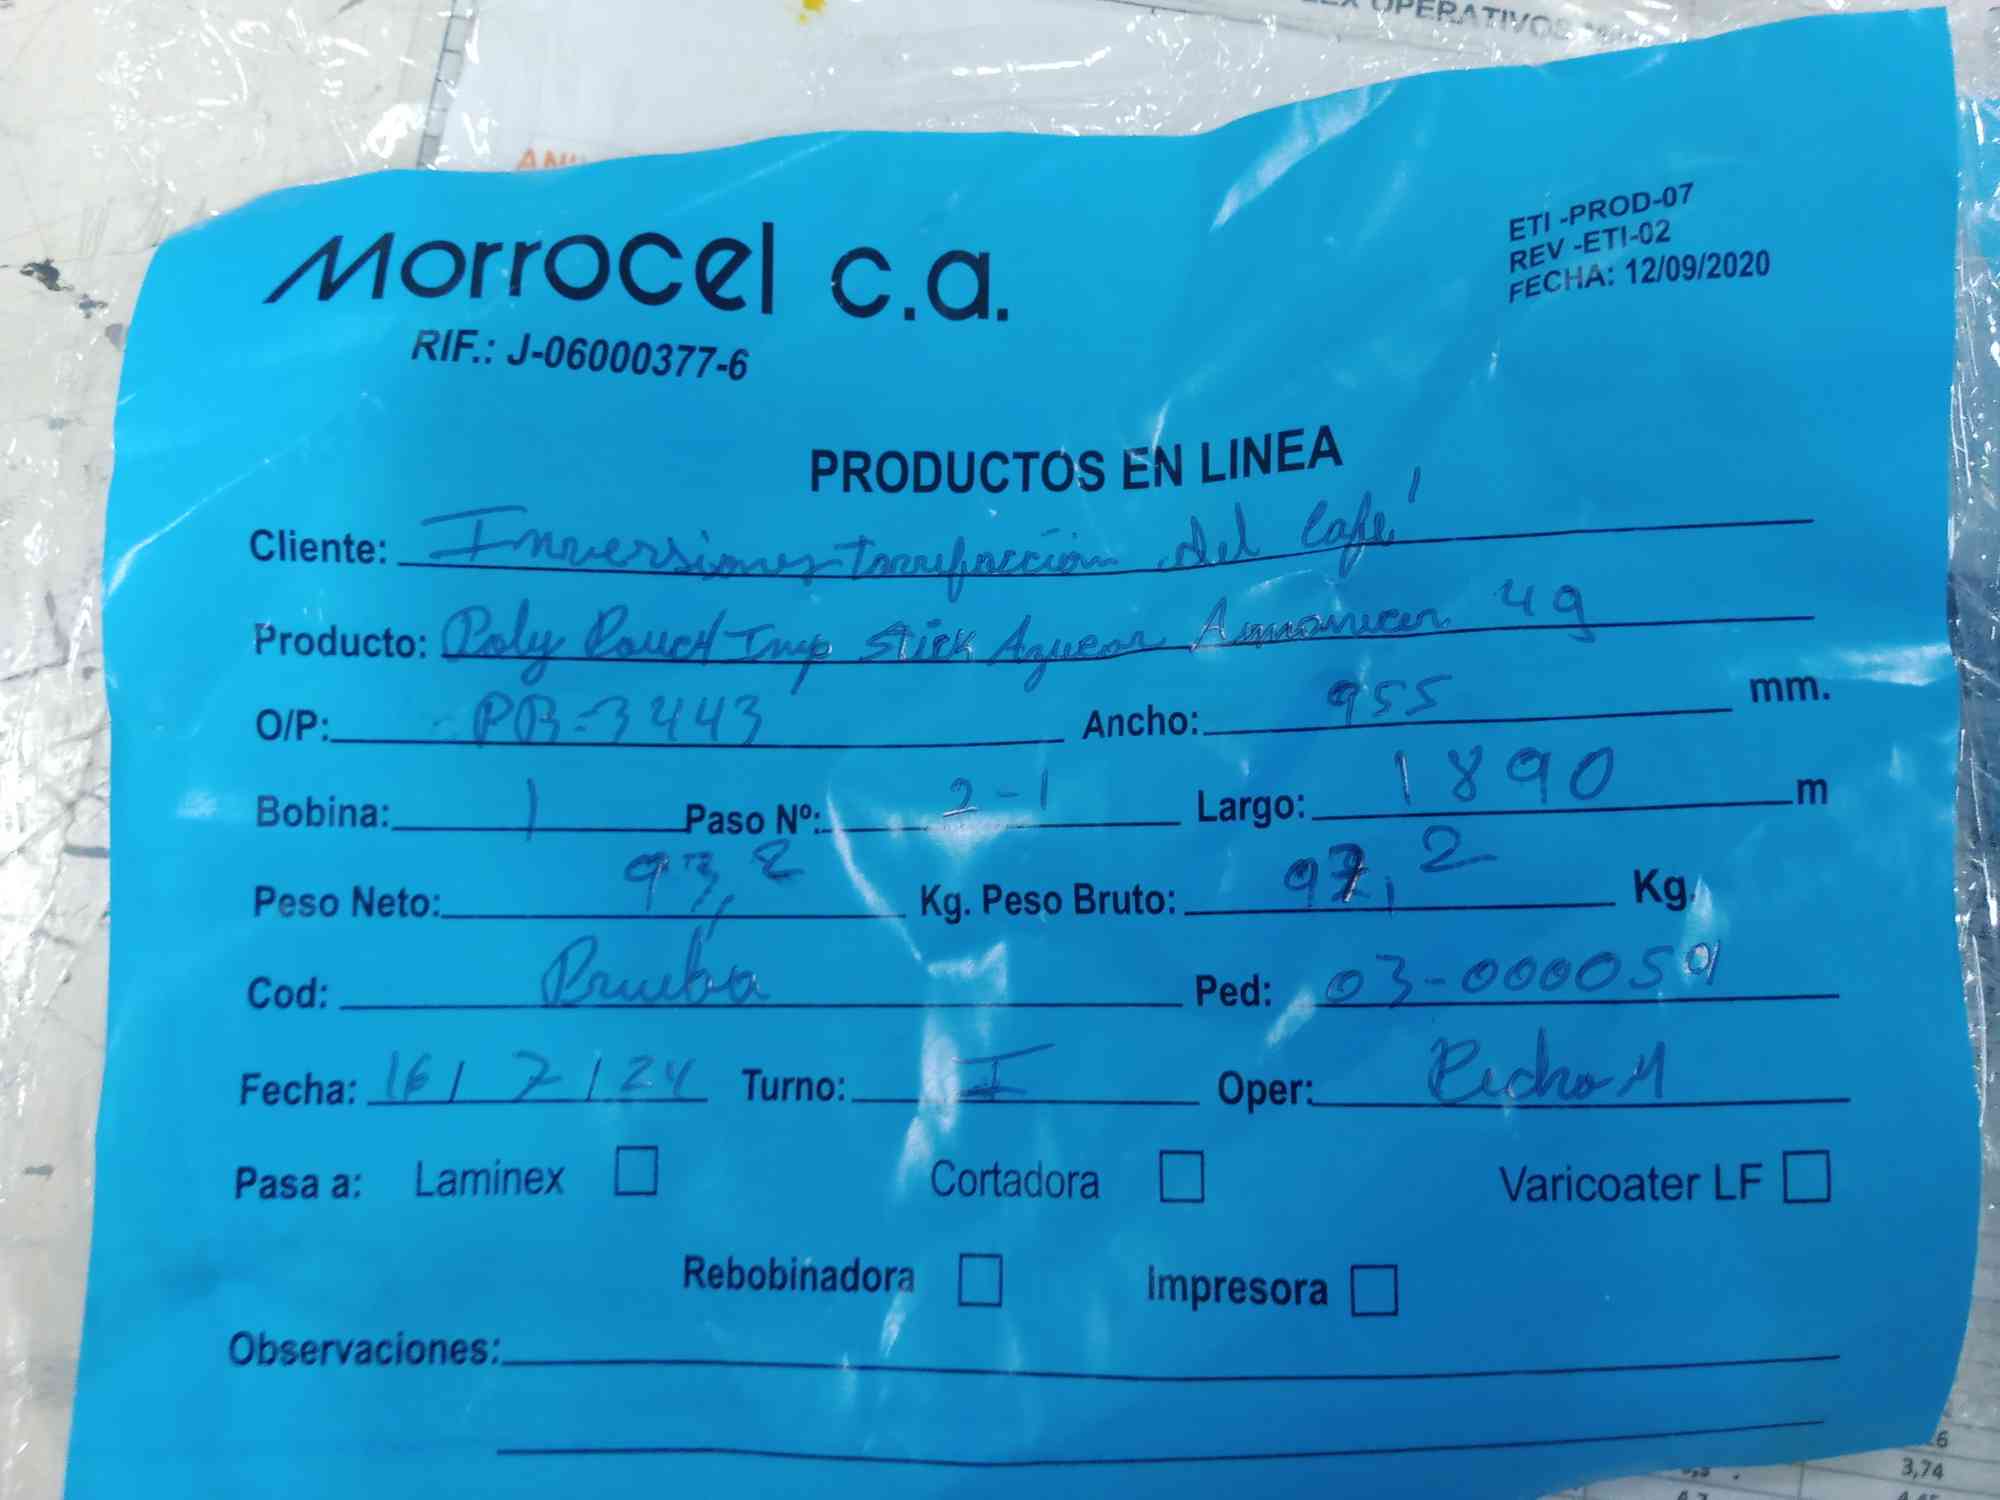 OPERATIVOS
Morrocel c.a.
RIF.: J-06000377-6
ETI -PROD-07
REV -ETI-02
FECHA: 12/09/2020
PRODUCTOS EN LINEA
Cliente: Inversiones torrefacción del Café
Producto: Poly Pouch Imp Stick Azucar 4g
O/P: PB-3443 Ancho: 955 mm.
Bobina: 1 Paso Nº: 2-1 Largo: 1890 m
Peso Neto: 93,2 Kg. Peso Bruto: 97,2 Kg.
Cod: Prueba Ped: 03-000059
Fecha: 16/7/24 Turno: I Oper: Pedro M
Pasa a: Laminex Cortadora Varicoater LF
Rebobinadora Impresora
Observaciones:
3,74